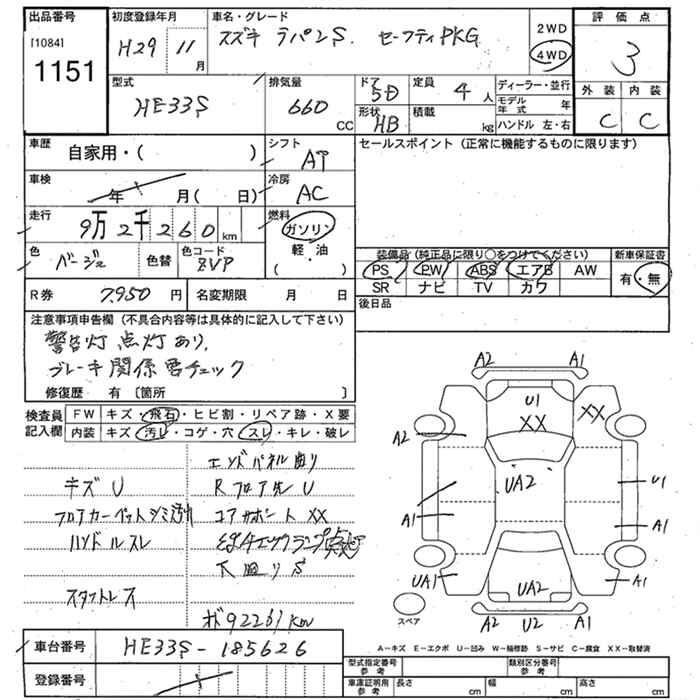 出品番号
[1084]
1151
初度登録年月
H29 11 月
車名・グレード
スズキ ラパンS. セーフティPKG
2WD
4WD
評価点
3
外装 内装
C C
型式
HE33S
排気量
660 CC
ドア
5D
形状
HB
定員
4 人
積載
kg
ディーラー・並行
モデル年式 年
ハンドル 左・右
車歴
自家用・( )
シフト
AT
セールスポイント (正常に機能するものに限ります)
車検
年 月( 日)
冷房
AC
走行
9万2千260 km
燃料
ガソリン
軽・油
( )
色
ベージュ
色替
色コード
ZVP
装備品 (純正品に限り○をつけてください)
PS PW ABS エアB AW
SR ナビ TV カワ
新車保証書
有・無
R券 7,950 円
名変期限 月 日
後日品
注意事項申告欄 (不具合内容等は具体的に記入して下さい)
警告灯 点灯あり、
ブレーキ関係要チェック
修復歴 有 〔箇所 〕
検査員記入欄
FW キズ・飛石・ヒビ割・リペア跡・X要
内装 キズ・汚レ・コゲ・穴・スレ・キレ・破レ
エンドパネル曲り
キズ U
Rフロア先 U
フロアカーペットシミ
コアサポート XX
ハンドルスレ
下回り S
スタットレス
メ92261km
A2 A1
U1
XX
XX
A2
UA2
U1
A1
A1
UA1
A1
UA2
A2 U2 A1
スペア
A-キズ E-エクボ U-凹み W-補修跡 S-サビ C-腐食 XX-取替済
車台番号
HE33S-185626
登録番号
型式指定番号 参考
類別区分番号 参考
車庫証明用 参考
長さ cm
幅 cm
高さ cm